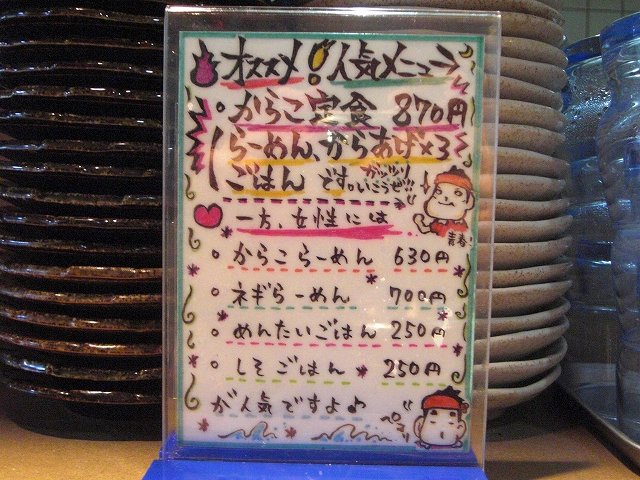 オススメ!人気メニュー
からこ定食 870円
らーめん、からあげ×3
ごはんです。ガッツリいこうぜ!!
一方、女性には
青春!
からこらーめん 630円
ネギらーめん 700円
めんたいごはん 250円
しそごはん 250円
が人気ですよ♪